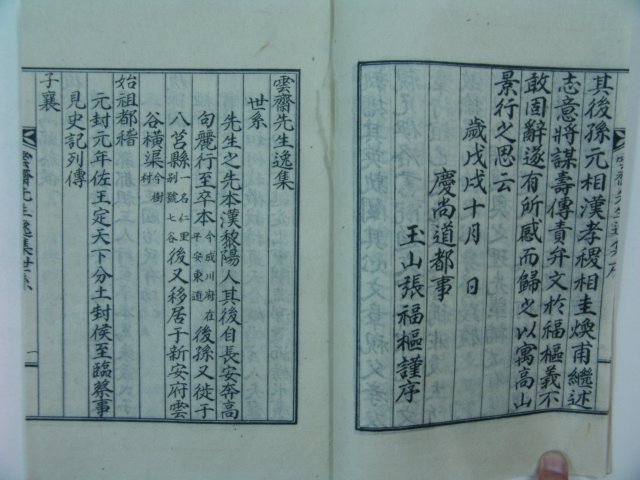 其後孫元相漢孝稷相圭煥甫繼述
志意將謀壽傳責弁文於福樞義不
敢固辭遂有所感而歸之以寓高山
景行之思云
歲戊戌十月 日
慶尚道都事
玉山張福樞謹序
雲齋先生逸集序
雲齋先生逸集
世系
先生之先本漢黎陽人其後自長安奔高
句麗行至卒本今成川府在平安東道後孫又徙于
八莒縣一名仁里别號七谷後又移居于新安府雲
谷橫渠今樹村
始祖都稽
元封元年佐王定天下分土封侯至臨蔡事
見史記列傳
子襄
雲齋先生逸集世系
一